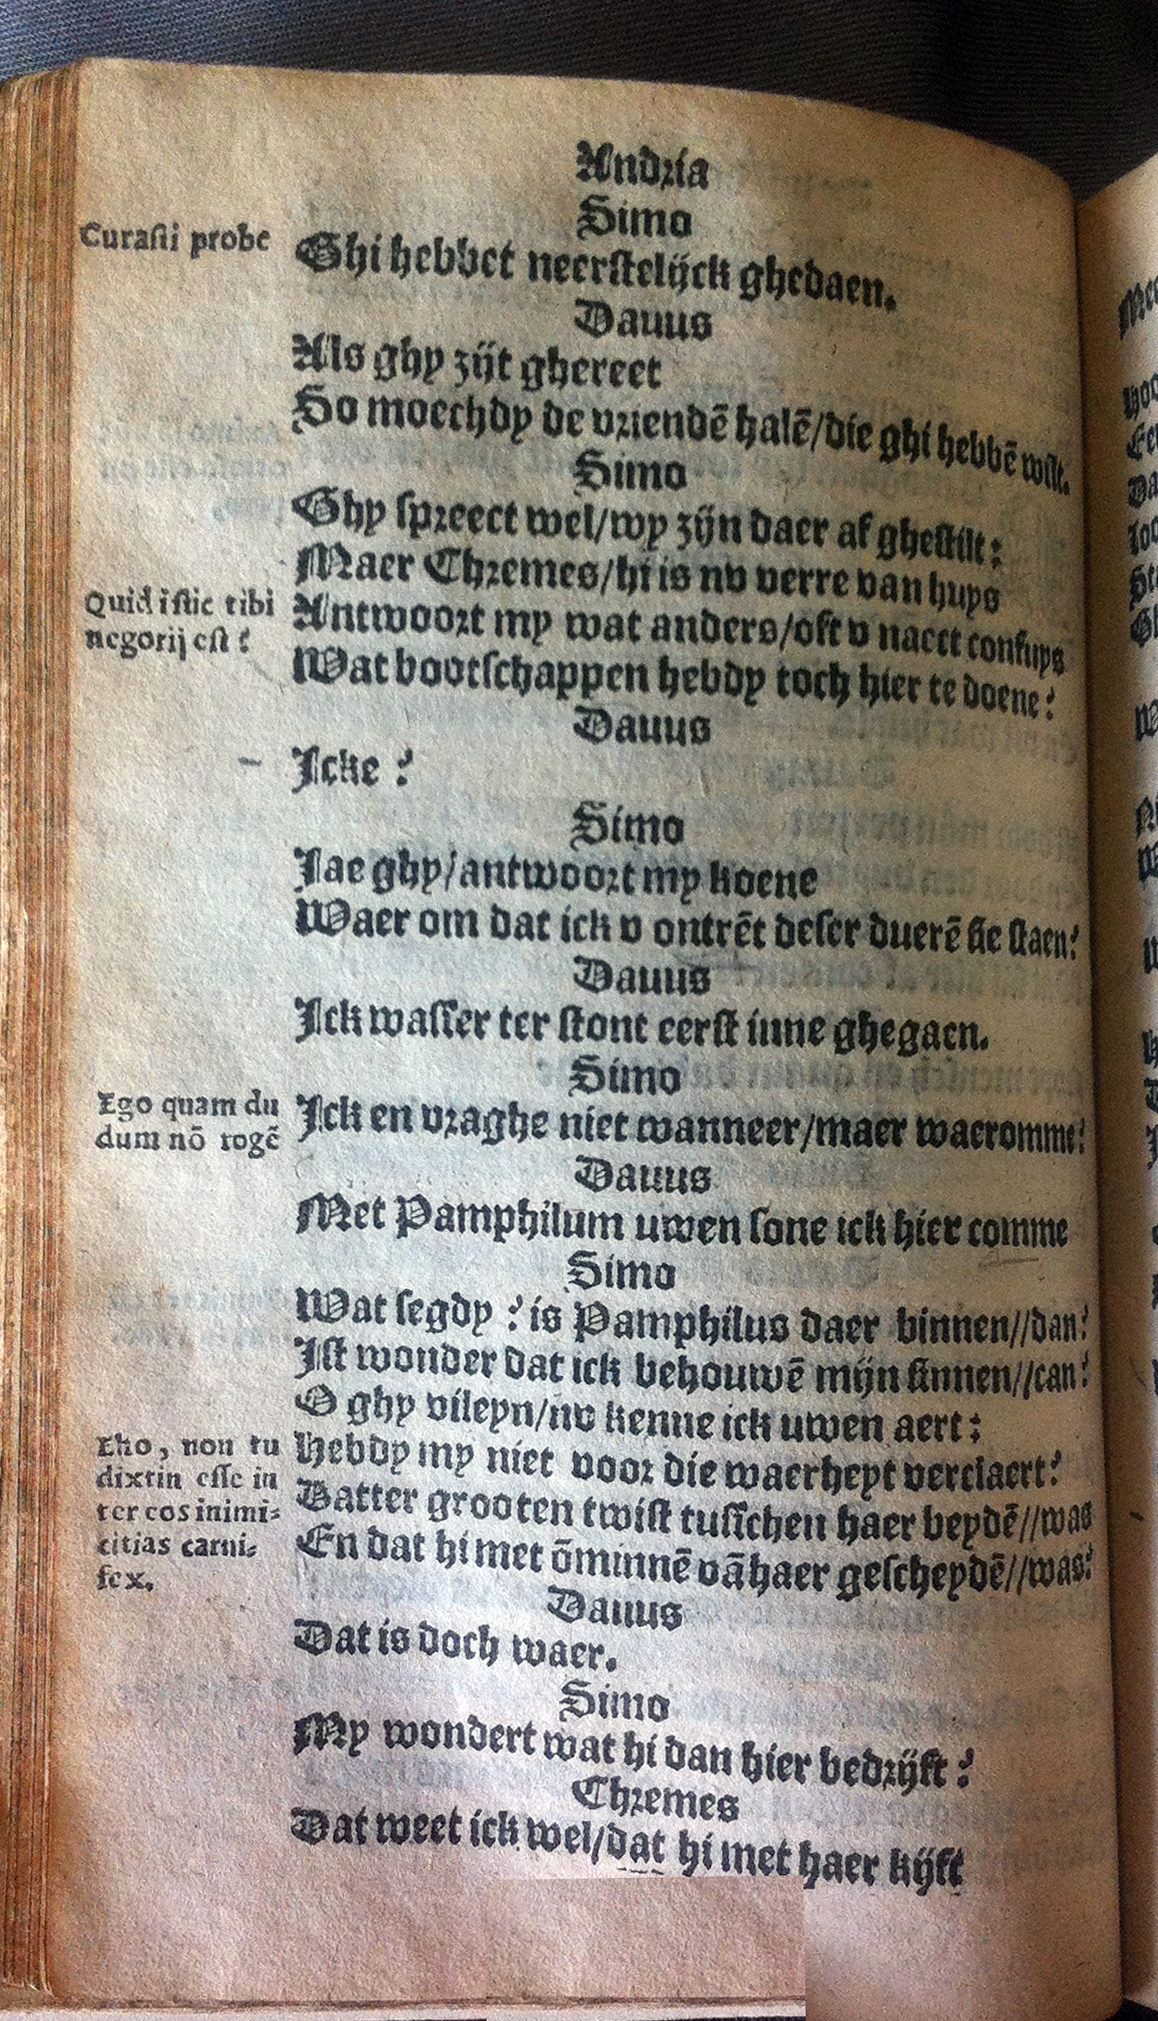 Andria
Simo
Curasti probe
Ghi hebbet neerstelijck ghedaen.
Dauus
Als ghy zijt ghereet
So moechdy de vriendē halē/die ghi hebbē wilt.
Simo
Ghy spreect wel/wy zijn daer af ghestilt:
Maer Chremes/hi is nv verre van huys
Quid istic tibi
negotij est?
Antwoort my wat anders/oft v naect confuys
Wat bootschappen hebdy toch hier te doene?
Dauus
Icke?
Simo
Jae ghy/antwoort my koene
Waer om dat ick v ontrēt deser duerē sie staen?
Dauus
Ick wasser ter stont eerst inne ghegaen.
Simo
Ego quam du
dum nō rogē
Ick en vraghe niet wanneer/maer waeromme?
Dauus
Met Pamphilum uwen sone ick hier comme
Simo
Wat segdy? is Pamphilus daer binnen//dan?
Ist wonder dat ick behouwē mijn sinnen//can?
O ghy vileyn/nv kenne ick uwen aert:
Eho, non tu
dixtin esse in
ter eos inimi=
citias carni=
fex.
Hebdy my niet voor die waerheyt verclaert?
Datter grooten twist tusschen haer beydē//was
En dat hi met ōminnē vā haer gescheydē//was?
Dauus
Dat is doch waer.
Simo
My wondert wat hi dan hier bedrijft?
Chremes
Dat weet ick wel/dat hi met haer kijft